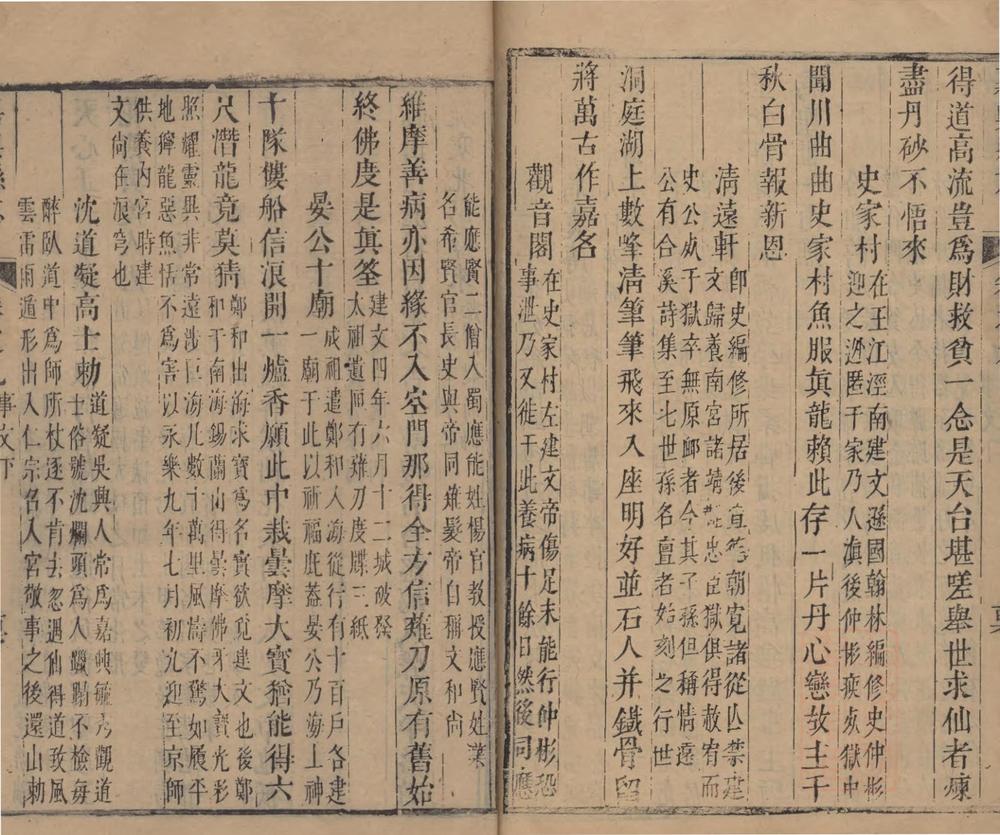 得道高流豈爲財救貧一念是天台堪嗟舉世求仙者煉
盡丹砂不悟來
史家村
在王江涇南建文遜國翰林編修史仲彬
迎之遯匿于家乃人滇後仲彬瘐死獄中
聞川曲曲史家村魚服眞龍賴此存一片丹心戀故主千
秋白骨報新恩
清遠軒
卽史編修所居後宣德朝寛諸從亡禁建
文歸養南宮諸靖難忠臣獄俱得赦宥而
史公死于獄卒無原䘏者今其子孫但稱情遠
公有合溪詩集至七世孫名亶者始刻之行世
洞庭湖上數峰淸筆筆飛來入座明好並石人并鐵骨留
將萬古作嘉名
觀音閣
在史家村左建文帝傷足未能行仲彬恐
事泄乃又徙于此養病十餘日然後同應
能應賢二僧入蜀應能姓楊官教授應賢姓葉
名希賢官長史與帝同薙髮帝自稱文和尙
維摩善病亦因緣不入空門那得全方信薙刀原有舊始
終佛度是眞筌
建文四年六月十二城破發
太祖遺匣有薙刀度牒三紙
晏公十廟
成祖遣鄭和入海從行有十百戶各建
一廟于此以祈福庇蓋晏公乃海上神
十隊僂船信浪開一爐香願此中栽曇摩大寳猶能得六
尺潛龍竟莫猜
鄭和出海求寳爲名實欲覓建文也後鄭
和于南海錫蘭山得曇摩佛牙大寳光彩
照耀靈異非常遠涉巨海凡數十萬里風濤不驚如履平
地獰龍惡魚恬不爲害以永樂九年七月初九迎至京師
供養內宮時建
文尙在滇穹也
沈道凝高士勅
道凝吳興人常爲嘉興毓秀觀道
士俗號沈爛頭爲人蠟蹋不檢每
醉臥道中爲師所杖逐不肯去忽遇仙得道致風
雲雷雨遁形出入仁宗名入宮敬事之後還山勅